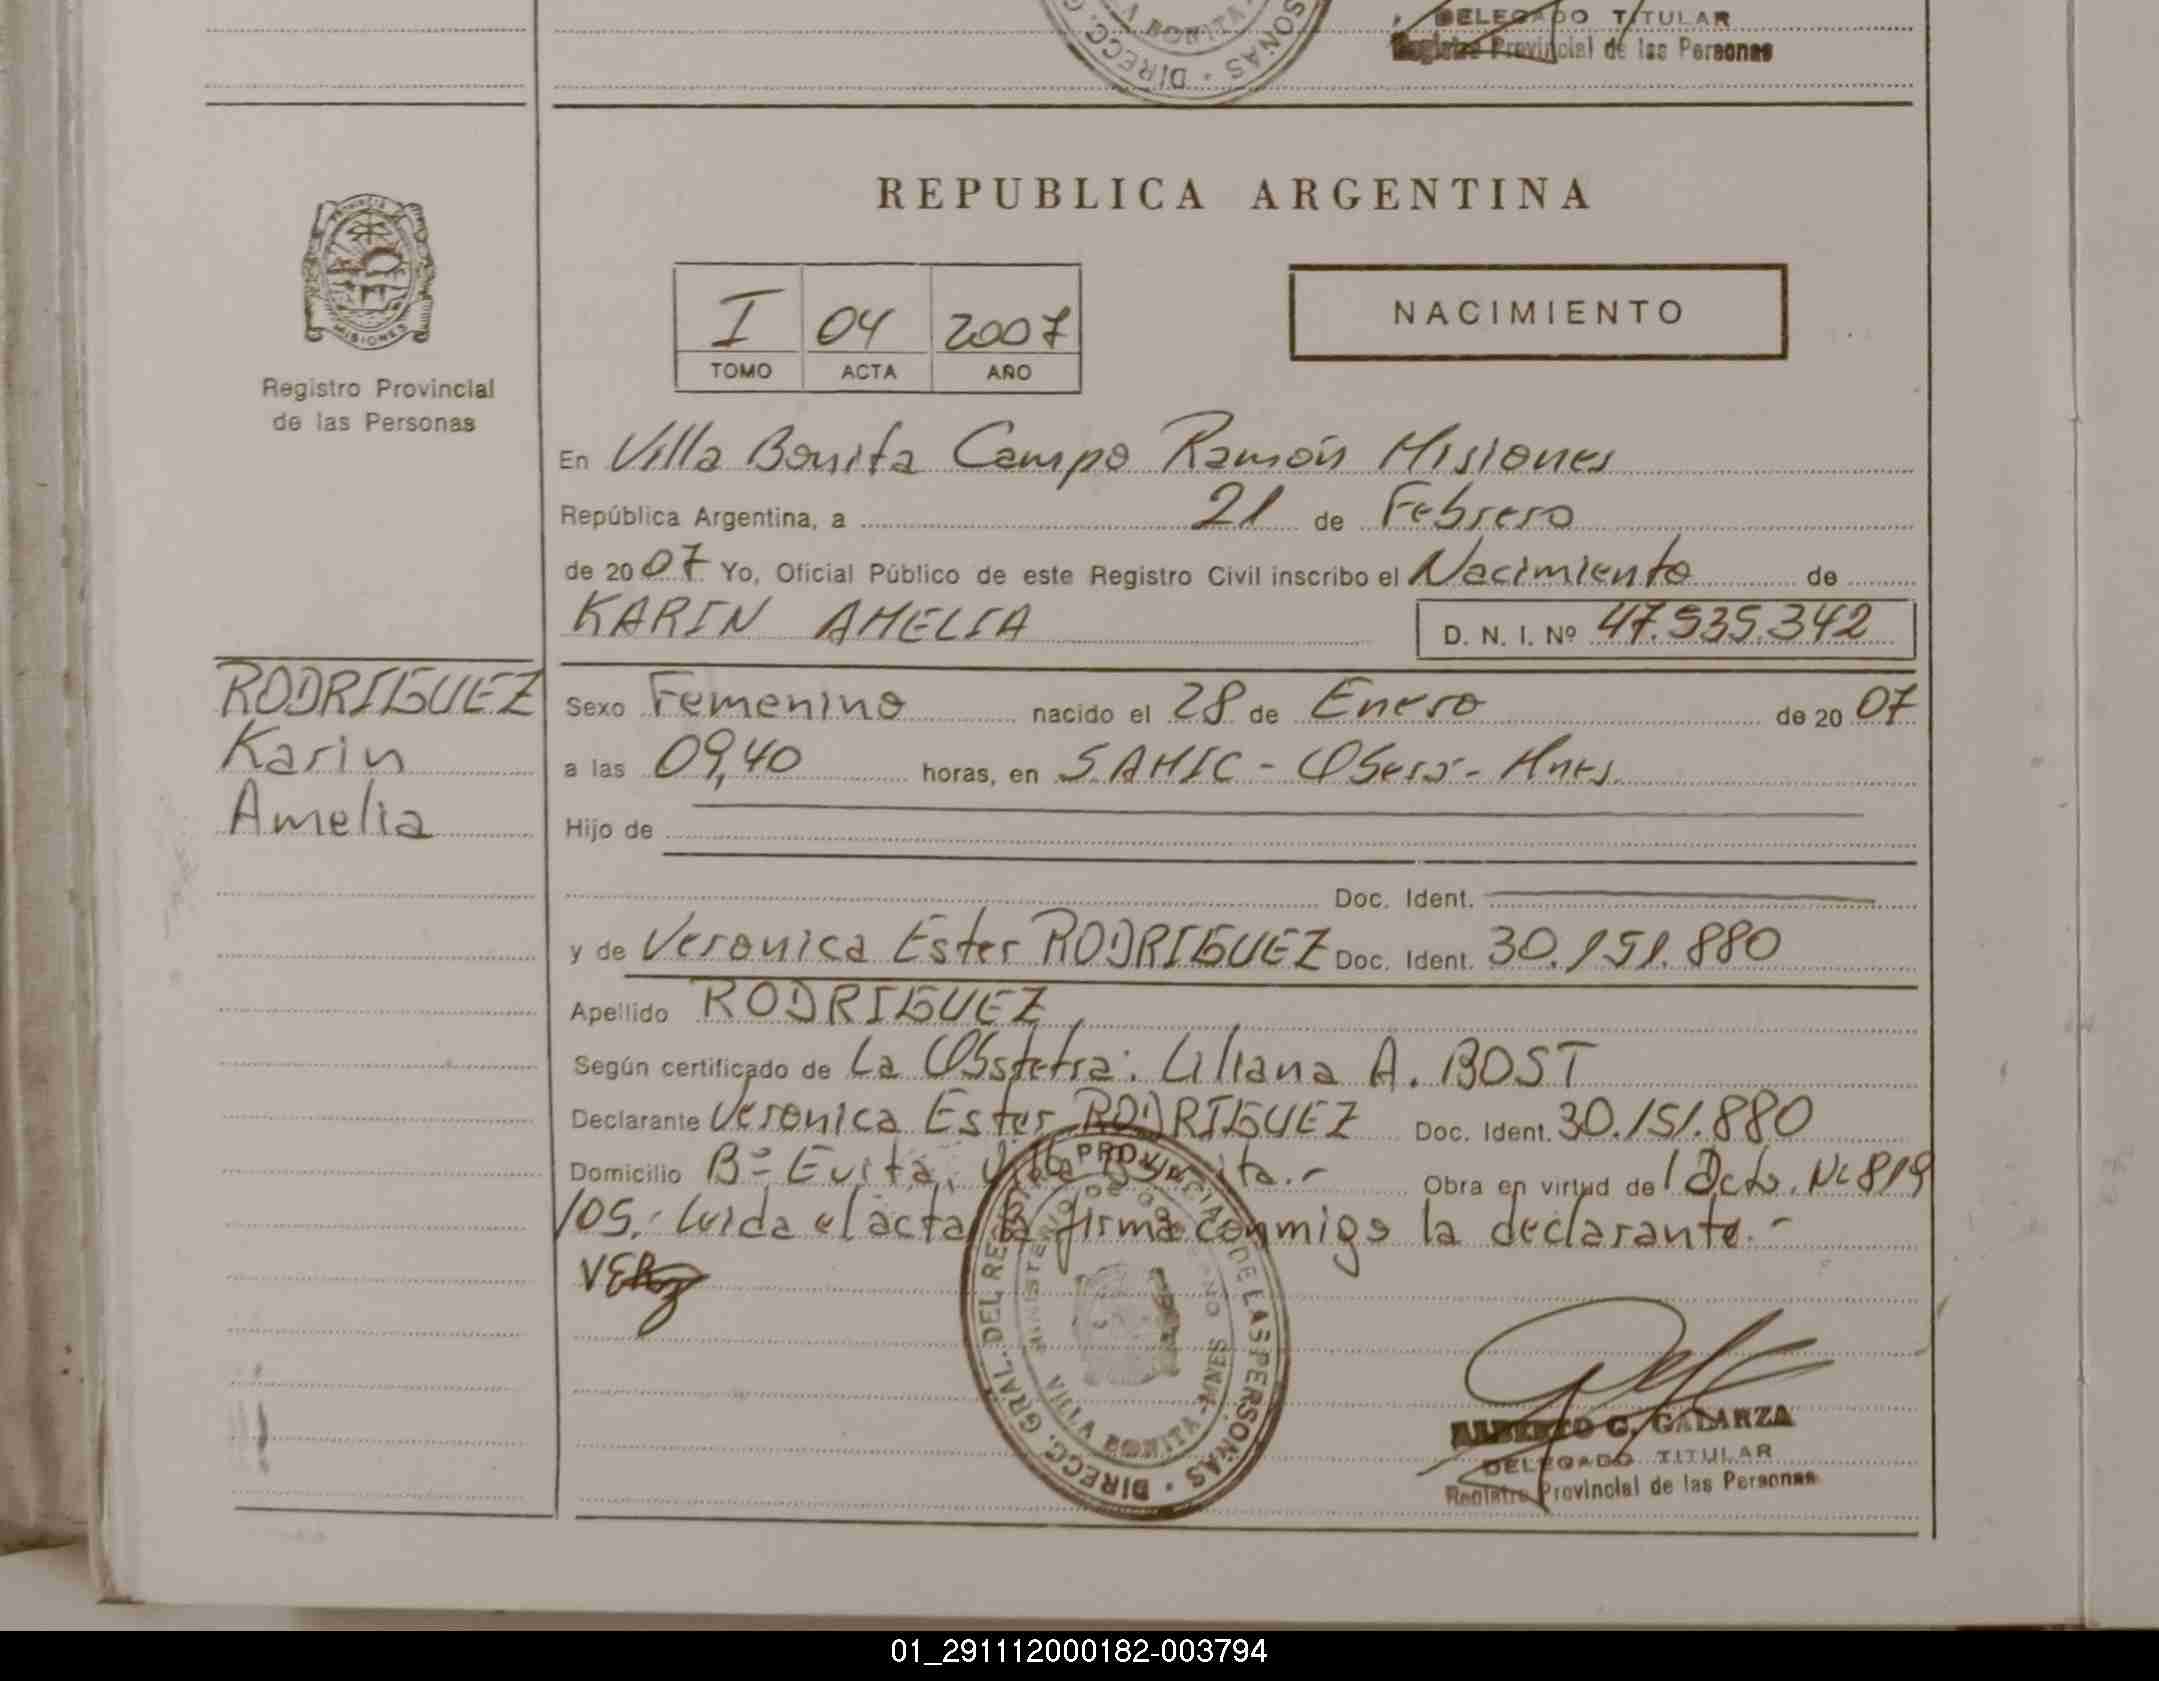 DELEGADO TITULAR
Registro Provincial de las Personas
A BONITA
DIRECC.
SONAS
REPUBLICA ARGENTINA
PROVINCIA DE
MISIONES
Registro Provincial
de las Personas
I 04 2007
TOMO ACTA AÑO
NACIMIENTO
En Villa Bonita Campo Ramón Misiones
República Argentina, a 21 de Febrero
de 2007 Yo, Oficial Público de este Registro Civil inscribo el Nacimiento de
KARIN AMELIA D. N. I. Nº 47.535.342
RODRIGUEZ
Karin
Amelia
Sexo Femenino nacido el 28 de Enero de 2007
a las 09,40 horas, en S.AMIC - Oberá - Mnes.
Hijo de
Doc. Ident.
y de Veronica Ester RODRIGUEZ Doc. Ident. 30.151.880
Apellido RODRIGUEZ
Según certificado de La Obstetra: Liliana A. BOST
Declarante Veronica Ester RODRIGUEZ Doc. Ident. 30.151.880
Domicilio Bº Evita, Villa Bonita.- Obra en virtud del Dcto. Nº 819
/05.- Leida el acta la firma conmigo la declarante.-
DIRECC. GRAL. DEL REG. PROVINCIAL DE LAS PERSONAS
MINISTERIO DE GOBIERNO
VILLA BONITA - MNES
ALBERTO G. GALARZA
DELEGADO TITULAR
Registro Provincial de las Personas
01_291112000182-003794